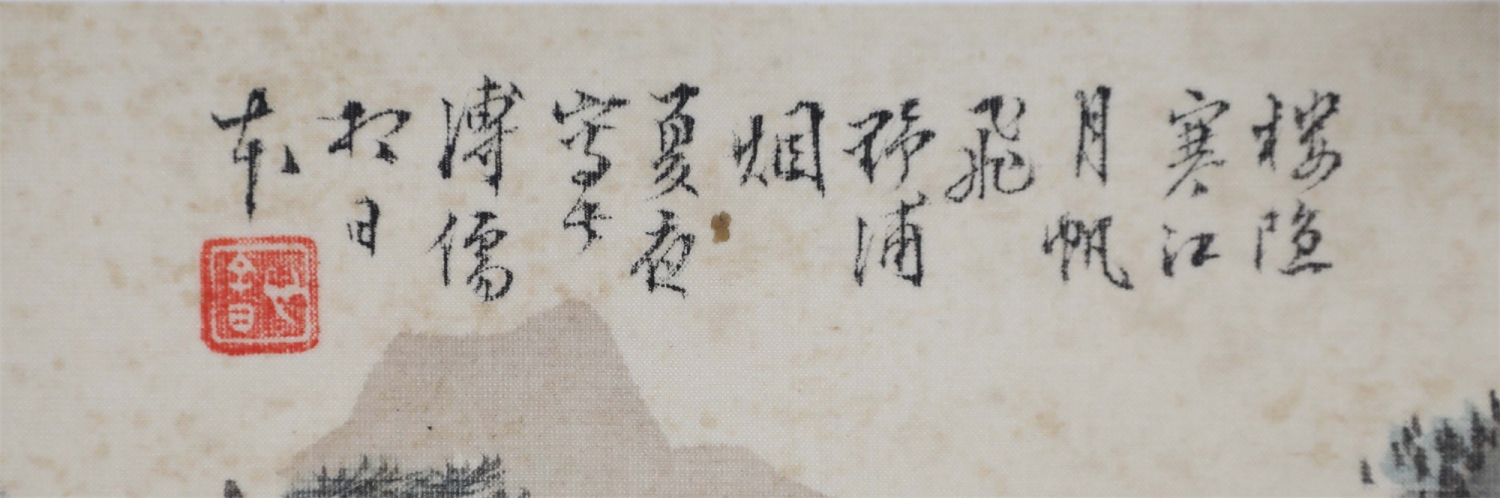 楼隐
寒江
月帆
飛
野浦
烟
夏夜
寫
溥儒
於日
本